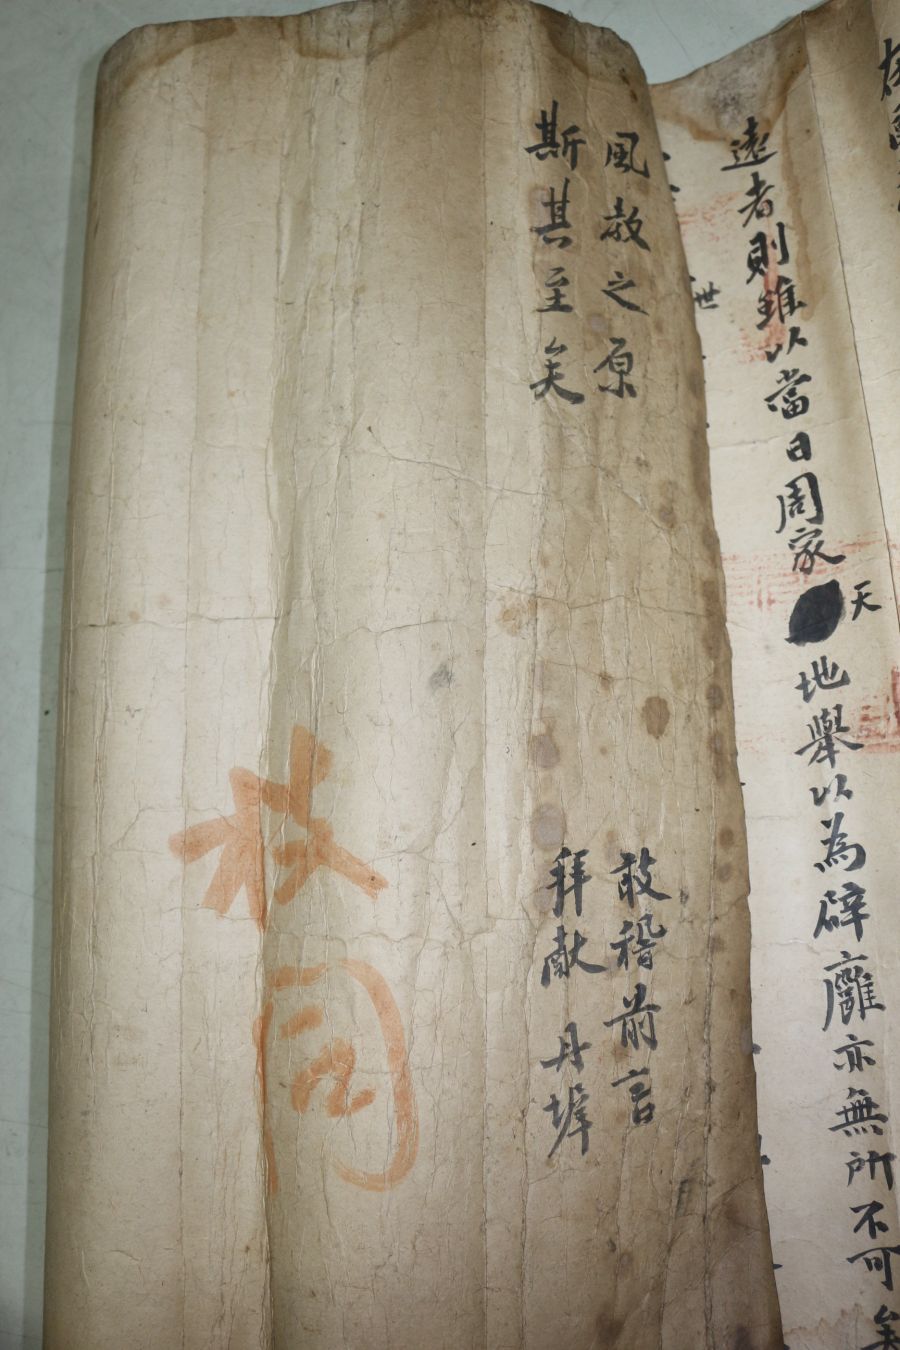 遠者則雖以當日周家天地舉以為辟廱亦無所不可矣
世
風教之原 敢稽前言
斯其至矣 拜獻 丹墀
枝同